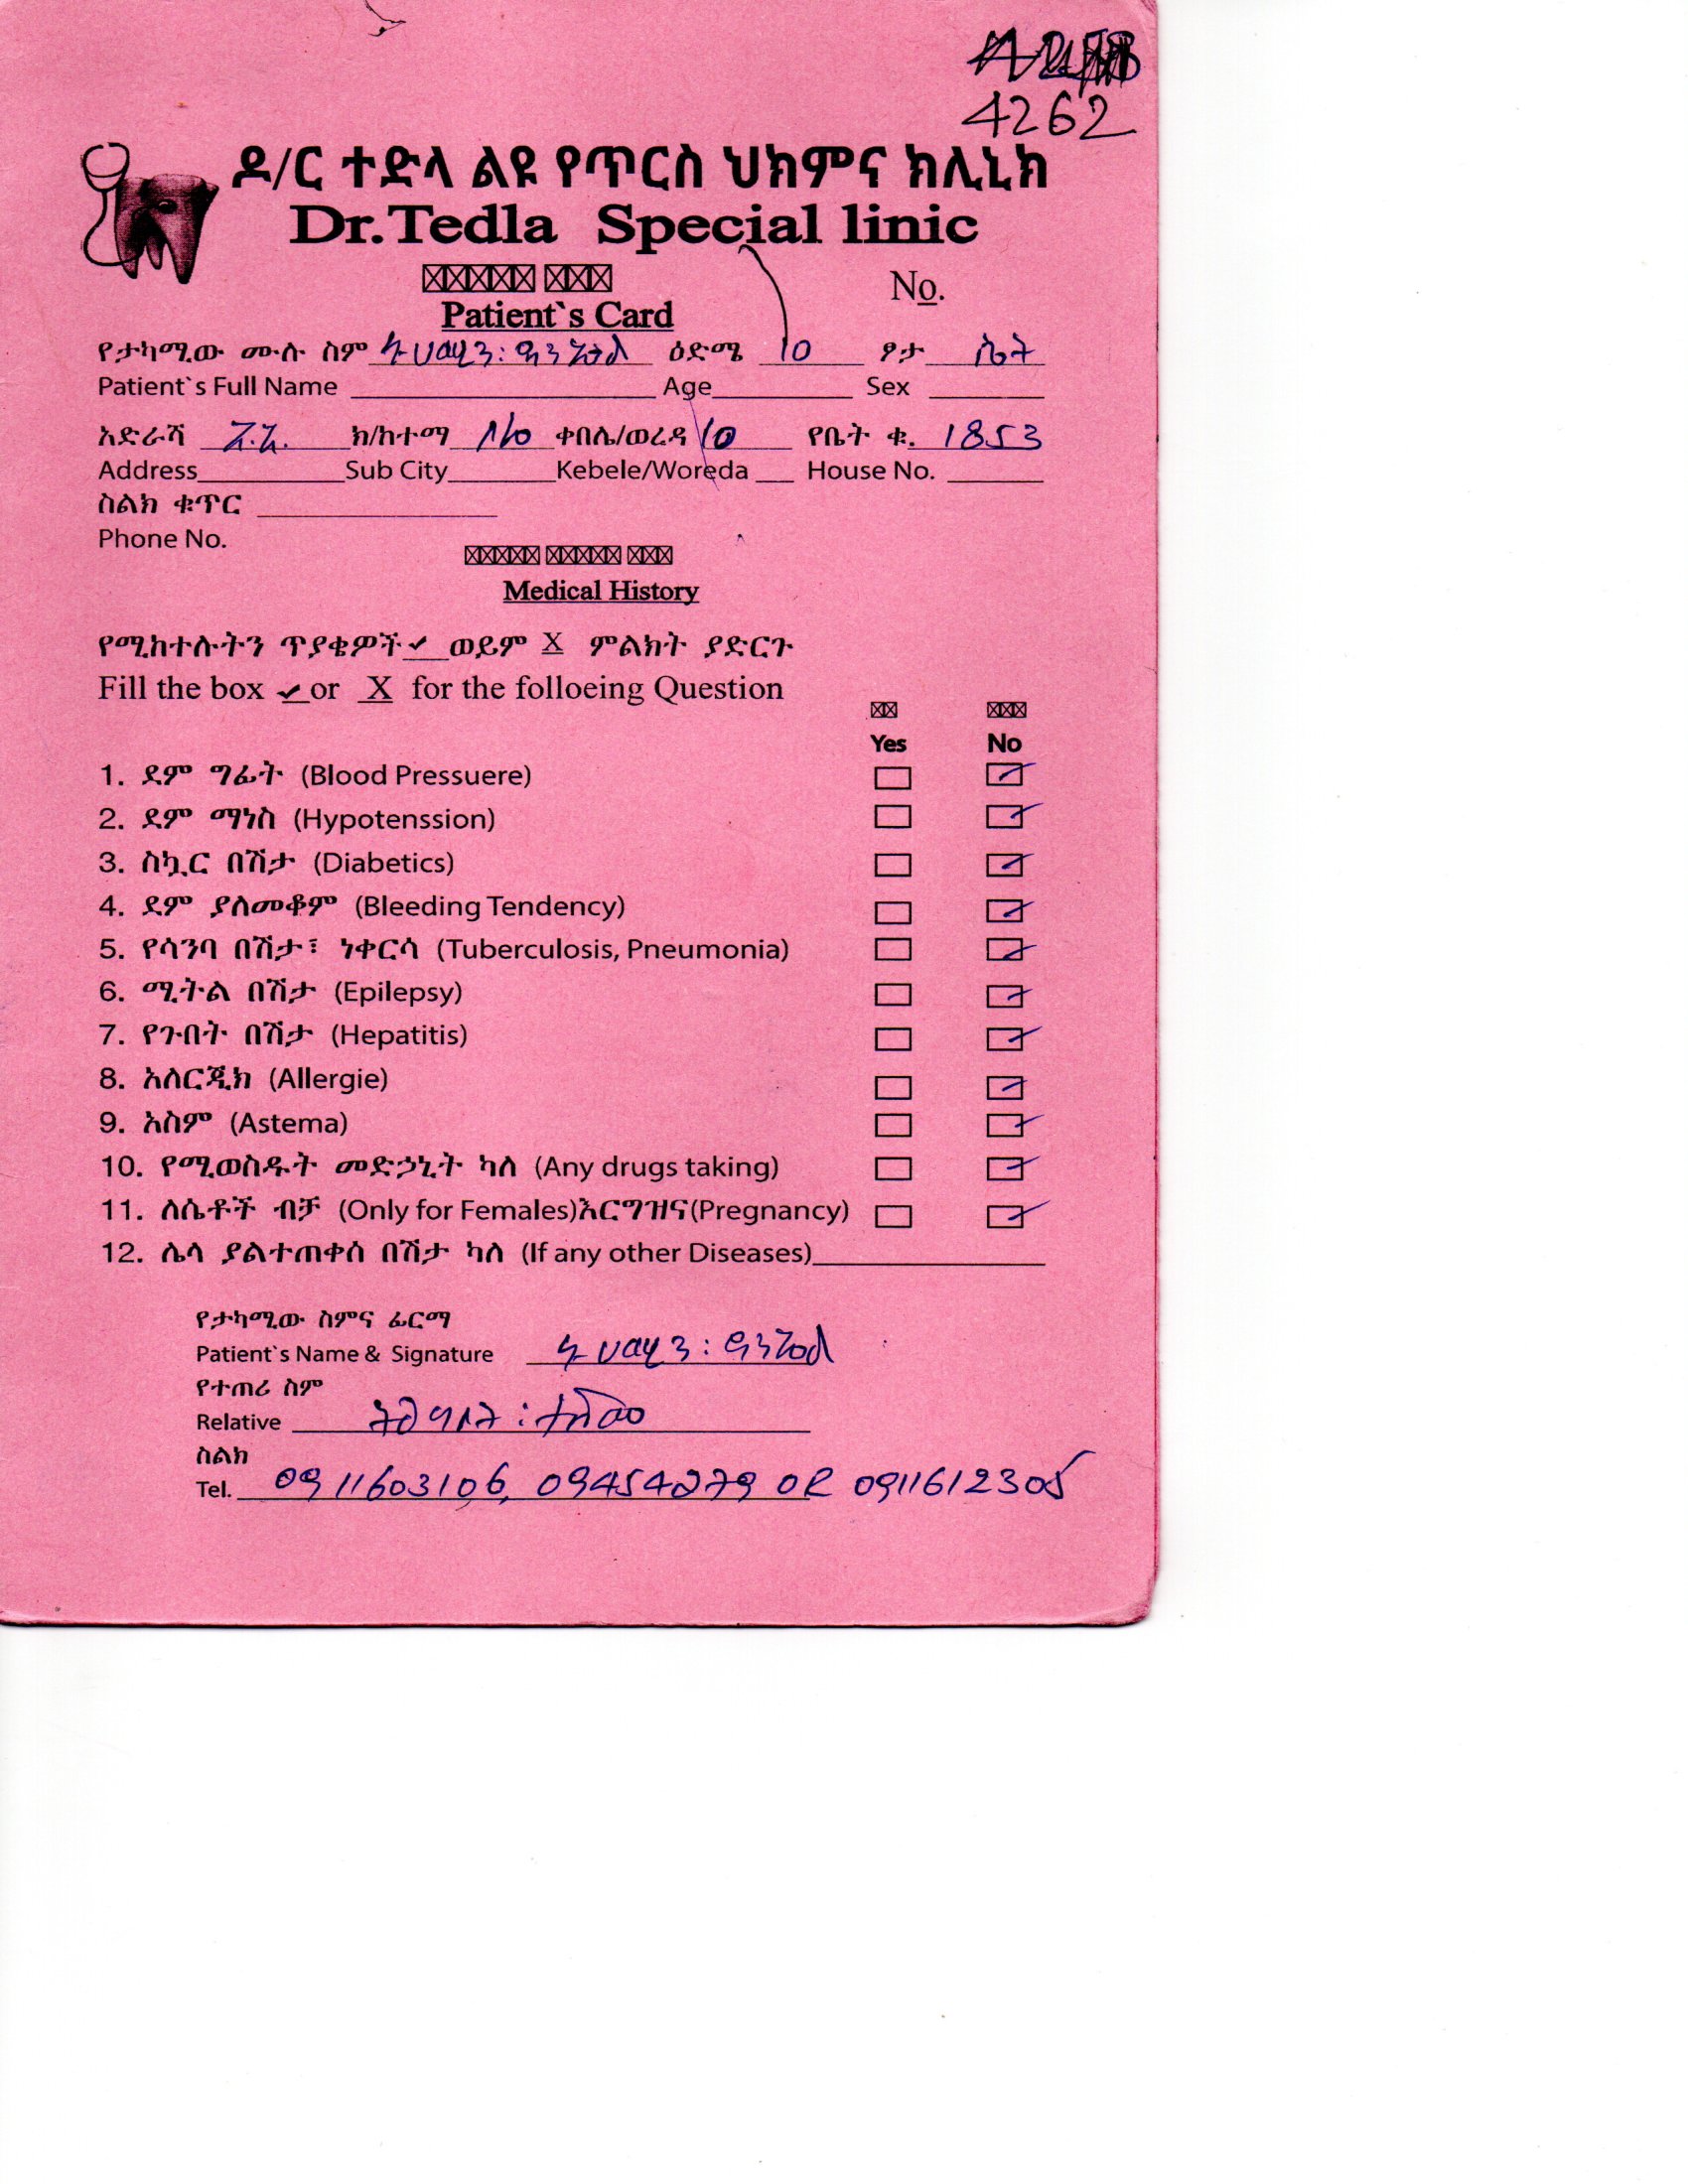 4262
ዶ/ር ተድላ ልዩ የጥርስ ህክምና ክሊኒክ
Dr.Tedla Special linic
No.
Patient`s Card
የታካሚው ሙሉ ስም ዕድሜ 10 ፆታ ሴት
Patient`s Full Name Age Sex
አድራሻ አ.አ. ክ/ከተማ ቀበሌ/ወረዳ 10 የቤት ቁ. 1853
Address Sub City Kebele/Woreda House No.
ስልክ ቁጥር
Phone No.
Medical History
የሚከተሉትን ጥያቄዎች ✓ ወይም X ምልክት ያድርጉ
Fill the box ✓ or X for the folloeing Question
Yes No
1. ደም ግፊት (Blood Pressuere)
2. ደም ማነስ (Hypotenssion)
3. ስኳር በሽታ (Diabetics)
4. ደም ያለመቆም (Bleeding Tendency)
5. የሳንባ በሽታ፣ ነቀርሳ (Tuberculosis, Pneumonia)
6. ሚትል በሽታ (Epilepsy)
7. የጉበት በሽታ (Hepatitis)
8. አለርጂክ (Allergie)
9. አስም (Astema)
10. የሚወስዱት መድኃኒት ካለ (Any drugs taking)
11. ለሴቶች ብቻ (Only for Females)እርግዝና(Pregnancy)
12. ሌላ ያልተጠቀሰ በሽታ ካለ (If any other Diseases)
የታካሚው ስምና ፊርማ
Patient`s Name & Signature
የተጠሪ ስም
Relative
ስልክ
Tel. 0911603106, 09454279 OR 0911612305